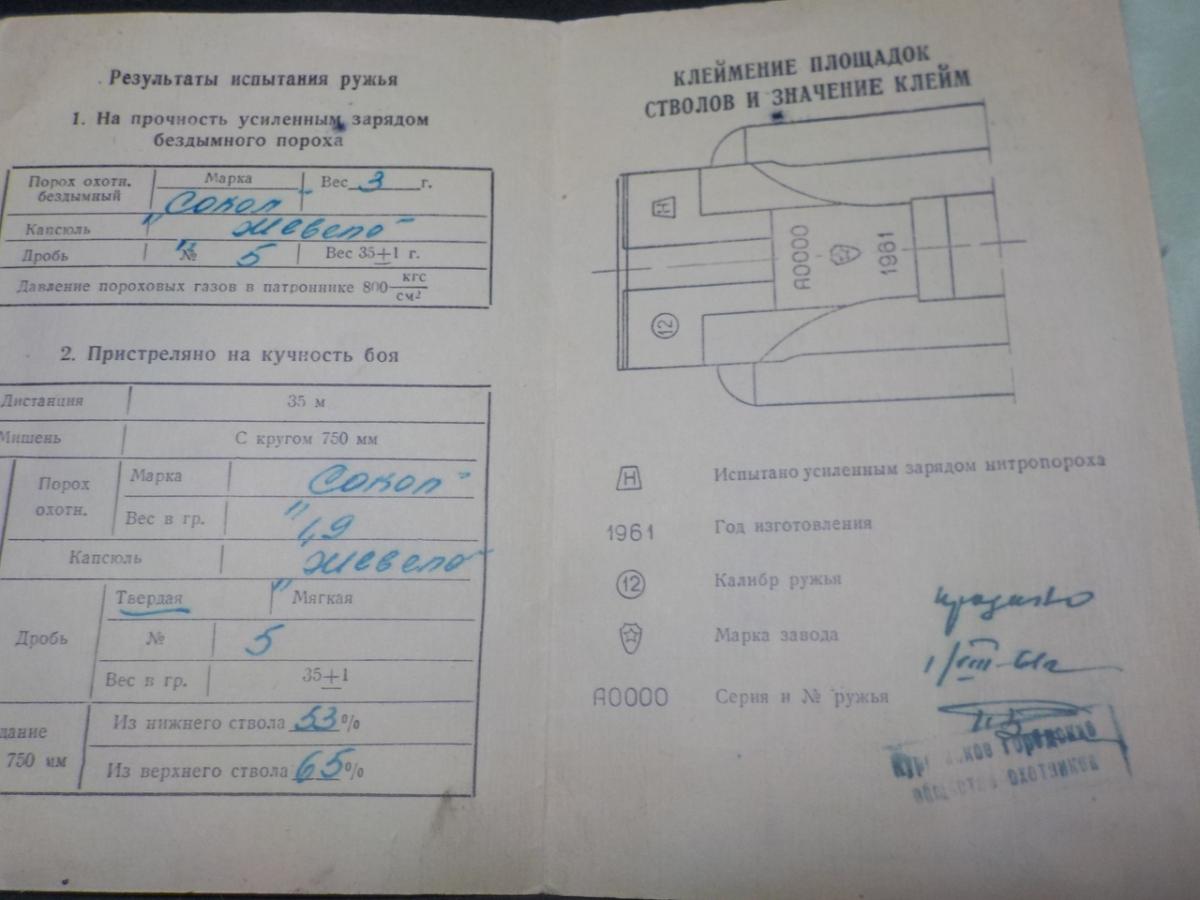 Результаты испытания ружья
1. На прочность усиленным зарядом
бездымного пороха
Порох охотн. бездымный Марка „Сокол" Вес 3 г.
Капсюль „Жевело"
Дробь № 5 Вес 35±1 г.
Давление пороховых газов в патроннике 800 кгс/см²
2. Пристреляно на кучность боя
Дистанция 35 м
Мишень С кругом 750 мм
Порох охотн. Марка „Сокол"
Вес в гр. 1,9
Капсюль „Жевело"
Дробь Твердая Мягкая
№ 5
Вес в гр. 35±1
дание 750 мм
Из нижнего ствола 53%
Из верхнего ствола 65%
КЛЕЙМЕНИЕ ПЛОЩАДОК
СТВОЛОВ И ЗНАЧЕНИЕ КЛЕЙМ
Н
А0000
1961
12
Н Испытано усиленным зарядом нитропороха
1961 Год изготовления
12 Калибр ружья
Марка завода
А0000 Серия и № ружья
продано
1/VIII-61г
городское
общество охотников